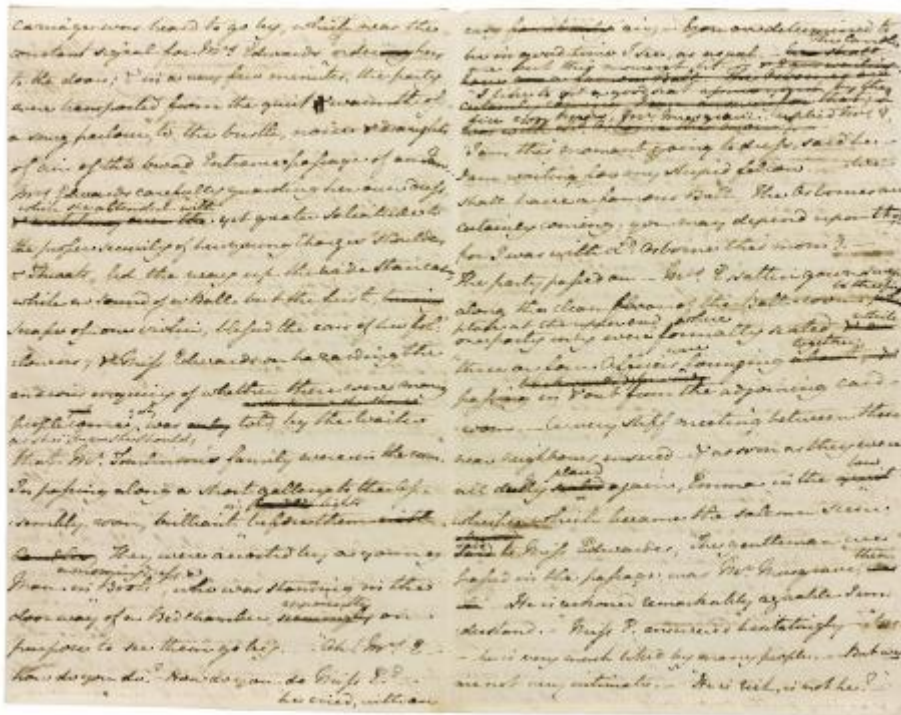 carriage was heard to go by, which near the
constant signal for Mrs Edwards ordering hers
to the door; & in a very few minutes, the party
were transported from the quiet & warmth of
a snug parlour, to the bustle, noises & draughts
of air of the broad Entrance passage of an Inn.
Mrs Edwards carefully guarding her own dress
while she attended with
yet greater solicitude to
the proper security of her young Charges' Shoulders
& Throats, led the way up the wide staircase,
while no sound of a Ball but the first,
scrape of one violin, blessed the ears of her fol-
lowers, & Miss Edwards on hazarding the
anxious enquiry of whether there were many
people come yet was told by the Waiter
as she knew she should,
that Mr Tomlinson's family were in the room.
In passing along a short gallery to the As-
sembly room, brilliant in lights before them
They were accosted by a young
Man in a morning dress & Boots, who was standing in the
doorway of a Bedchamber, apparently on
purpose to see them go by. "Ah! Mrs E.
how do you do? How do you do Miss E.?
he cried, with an
easy air; You are determined to
be in good time I see, as usual.
but this moment lit
I am this moment going to dress, said he
I am waiting for my stupid fellow. We
shall have a famous Ball. The Osbornes are
certainly coming; you may depend upon that
for I was with Ld Osborne this morng
The party passed on. Mrs E's sattin gown swept
along the clean floor of the Ball-room to the fire
place at the upper end, where
one party only were formally seated, while
three or four Officers were lounging together,
passing in & out from the adjoining card-
room. A very stiff meeting between these
near neighbours ensued & as soon as they were
all duely placed again, Emma in the low
whisper which became the solemn scene
said to Miss Edwardes, The gentleman we
passed in the passage, was Mr Musgrave, then
He is reckoned remarkably agreable I un-
derstand. Miss E. answered hesitatingly Yes
he is very much liked by many people. But we
are not very intimate. He is rich, is not he?